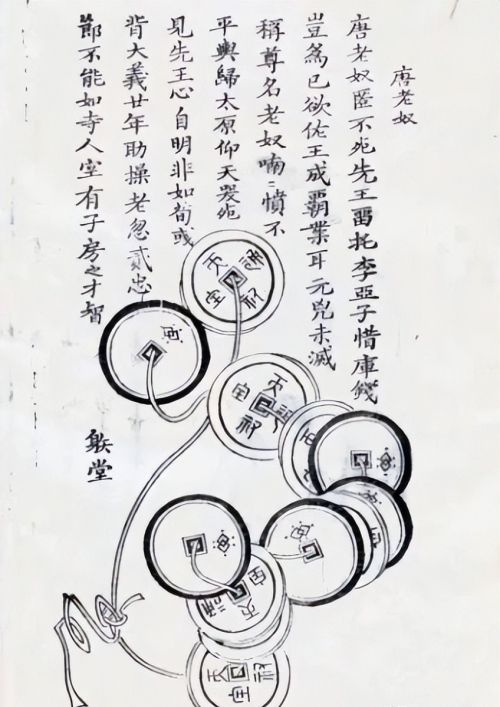 唐老奴
唐老奴匿不死先王畱托李亞子惜庫錢
豈爲已欲佐王成覇業耳元兇未滅
稱尊名老奴喃〻憤不
平輿歸太原仰天发死
見先王心自明非如荀彧
背大義廿年助操老忽貳忠
節不能如寺人室有子房之才智
堂
天宝通
天宝